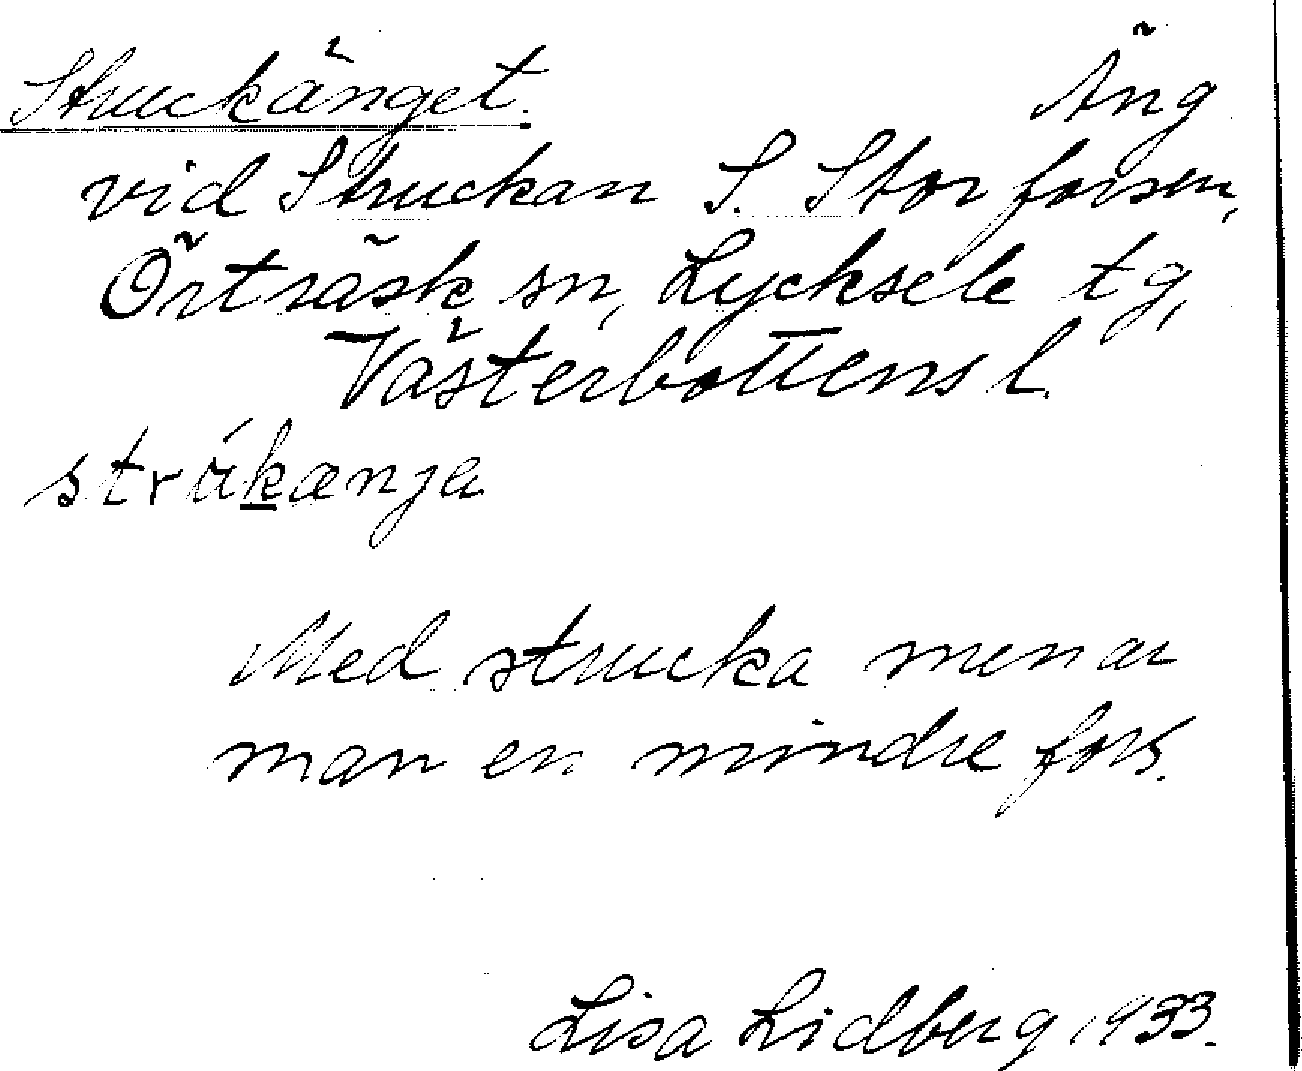 Struckänget. Äng
vid Struckan S. Storforsen,
Örträsk sn, Lycksele tg,
Västerbottens l.
strúkænja
Med strucka menar
man en mindre fors.
Lisa Lidberg 1933.